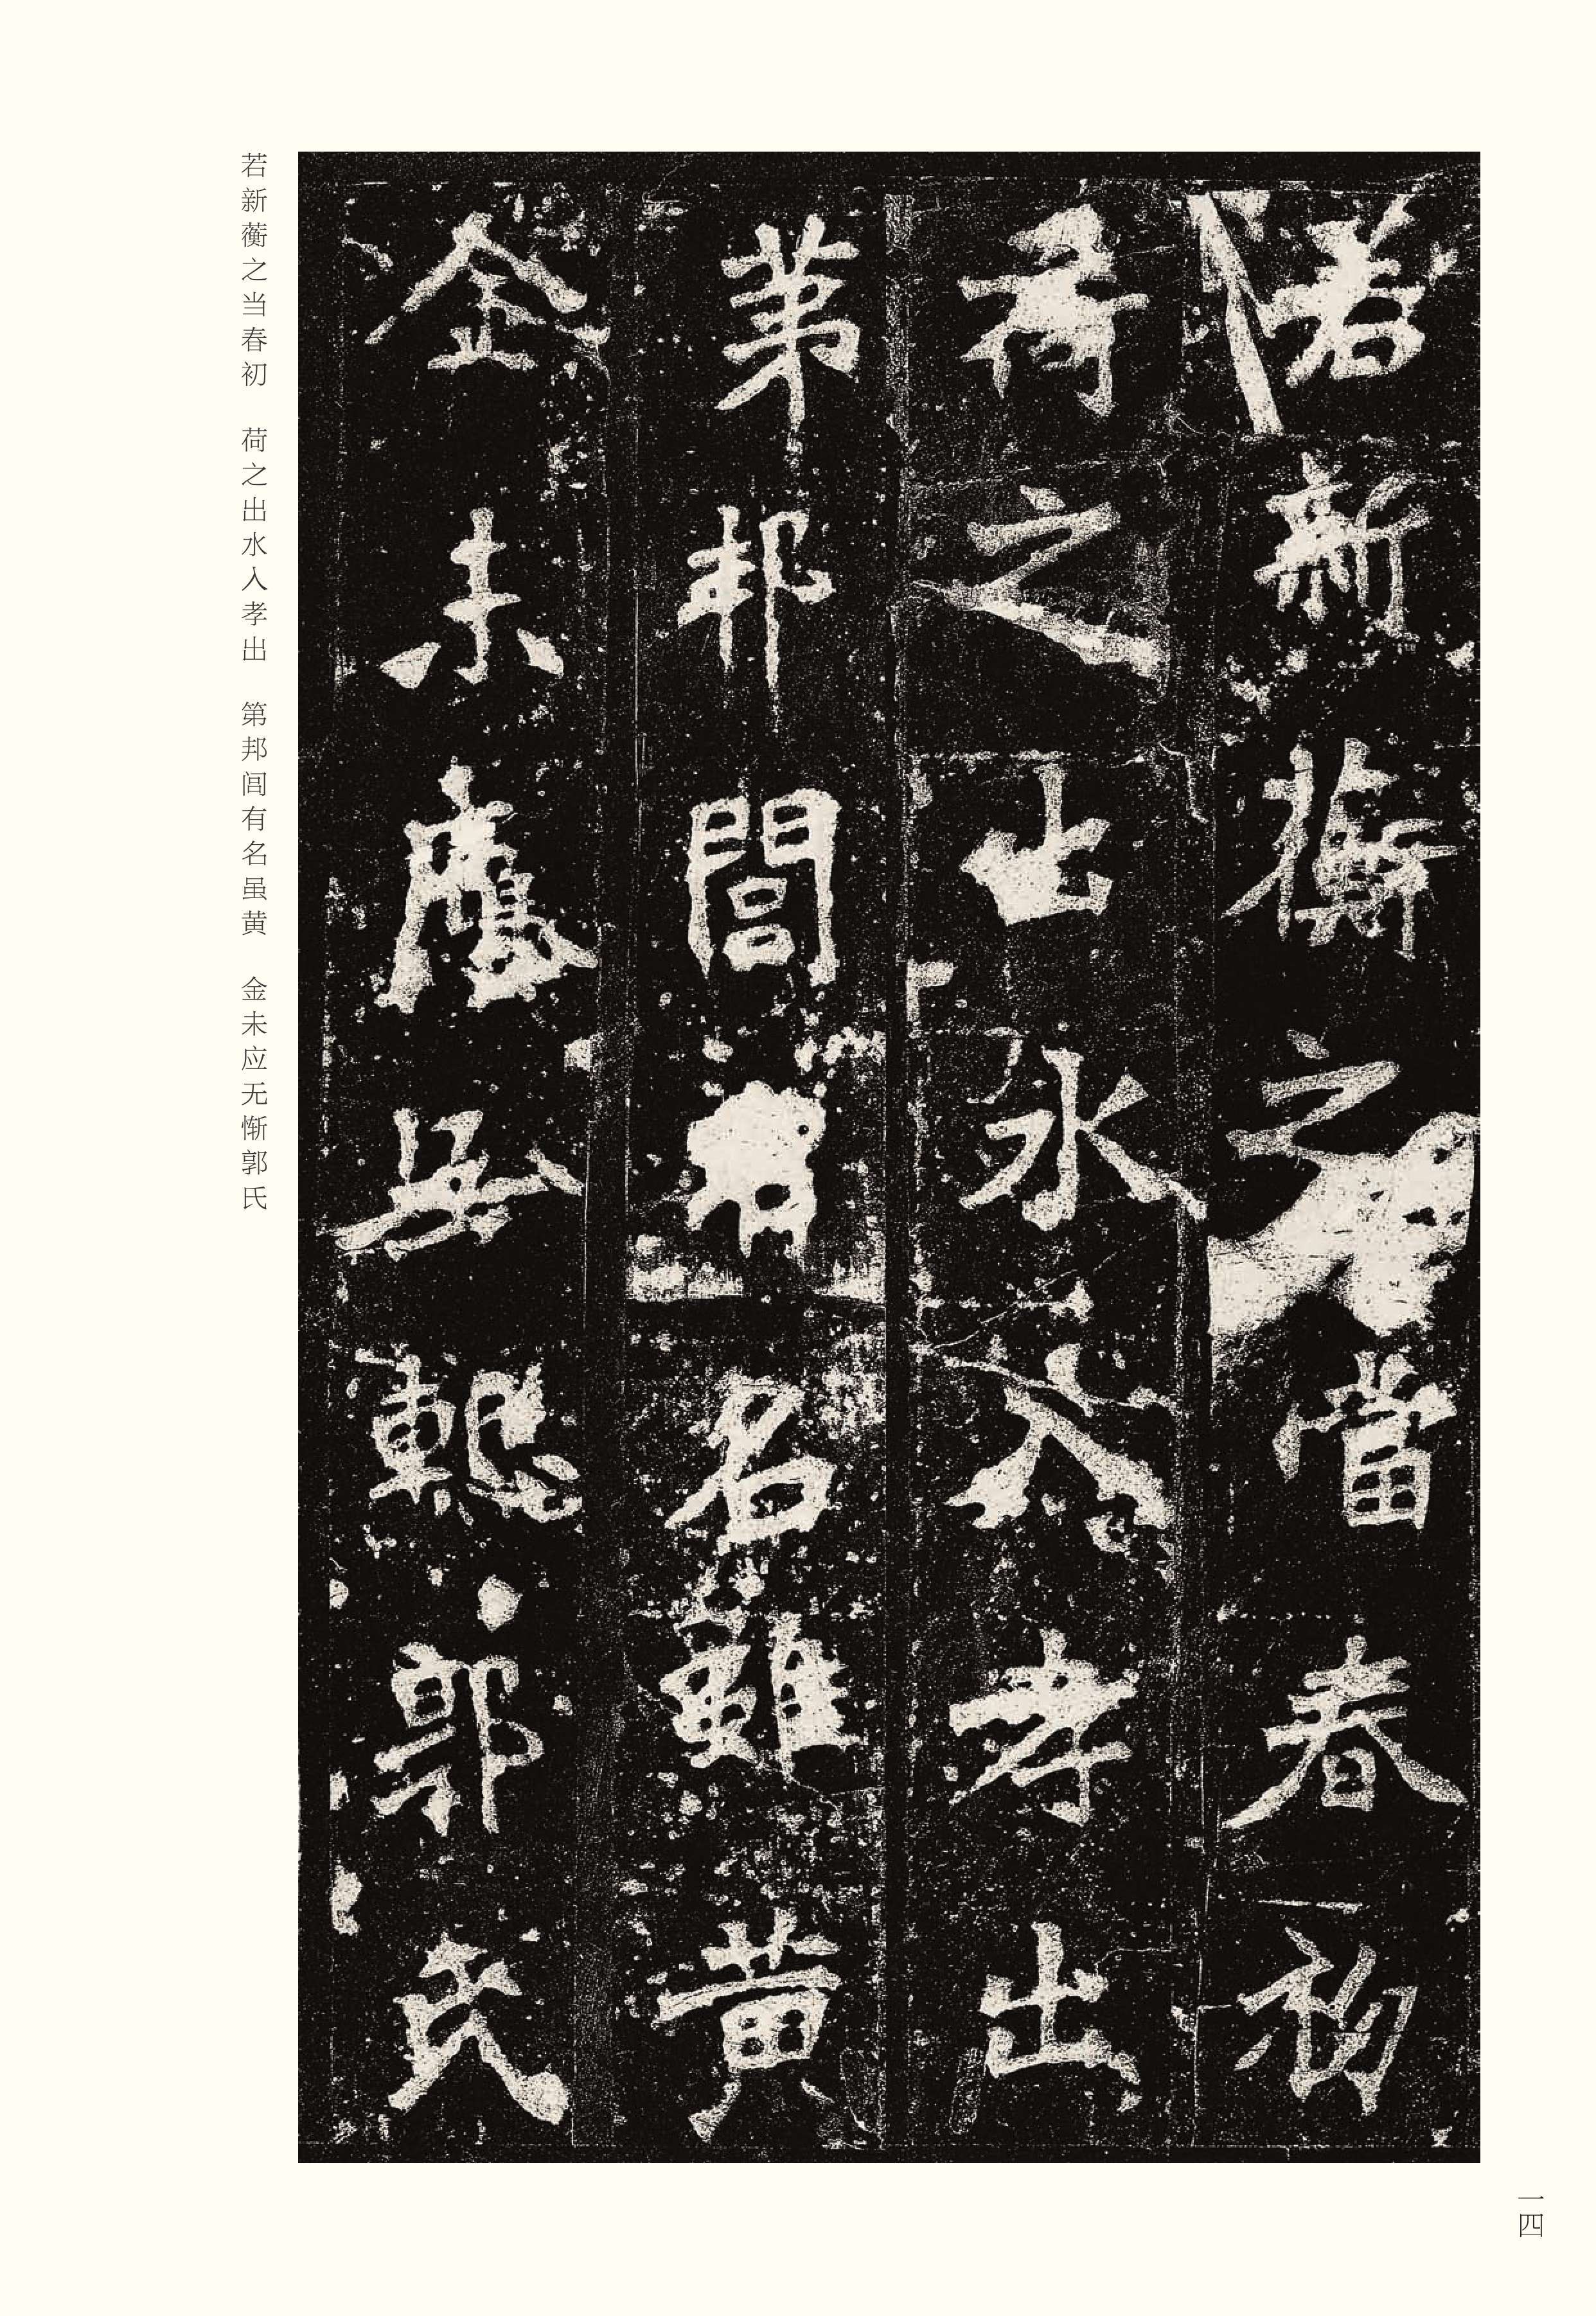 若新蘅之當春初
荷之出水入孝出
苐邦閭有名雖黄
金未應無慙郭氏
若新蘅之当春初　荷之出水入孝出　第邦闾有名虽黄　金未应无惭郭氏
一四